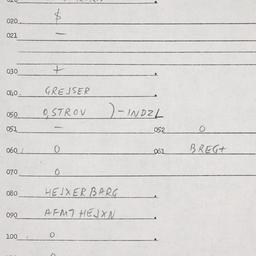 020 $
021 –
030 +
040 GREJSER
050 OSTROV )-INDZL
051 – 052 0
060 0 061 BREG+
070 0
080 HEJXERBARG
090 AFMT HEJXN
100 0